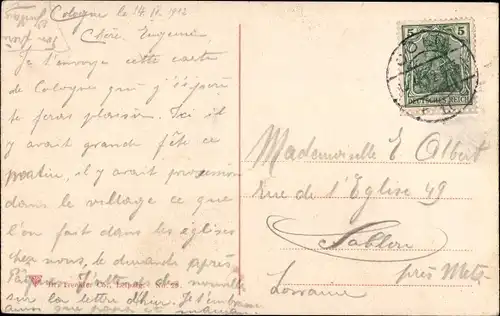 Cologne le 14 IV. 1912
Chère Eugénie
Je t'envoye cette carte
de Cologne que j'espère
te feras plaisir. Ici il
y avait grande fête ce
matin, il y avait procession
dans le village ce que
l'on fait dans les églises
chez nous, le dimanche après
Pâques. J'attends des nouvelles
sur la lettre d'hier. Je t'embrasse
ainsi que papa et maman.
5
5
DEUTSCHES REICH
Mademoiselle E. Albert
Rue de l'Eglise 49
Sablon
près Metz
Lorraine